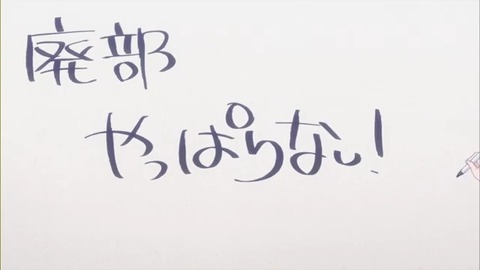 廃部
やっぱらない!